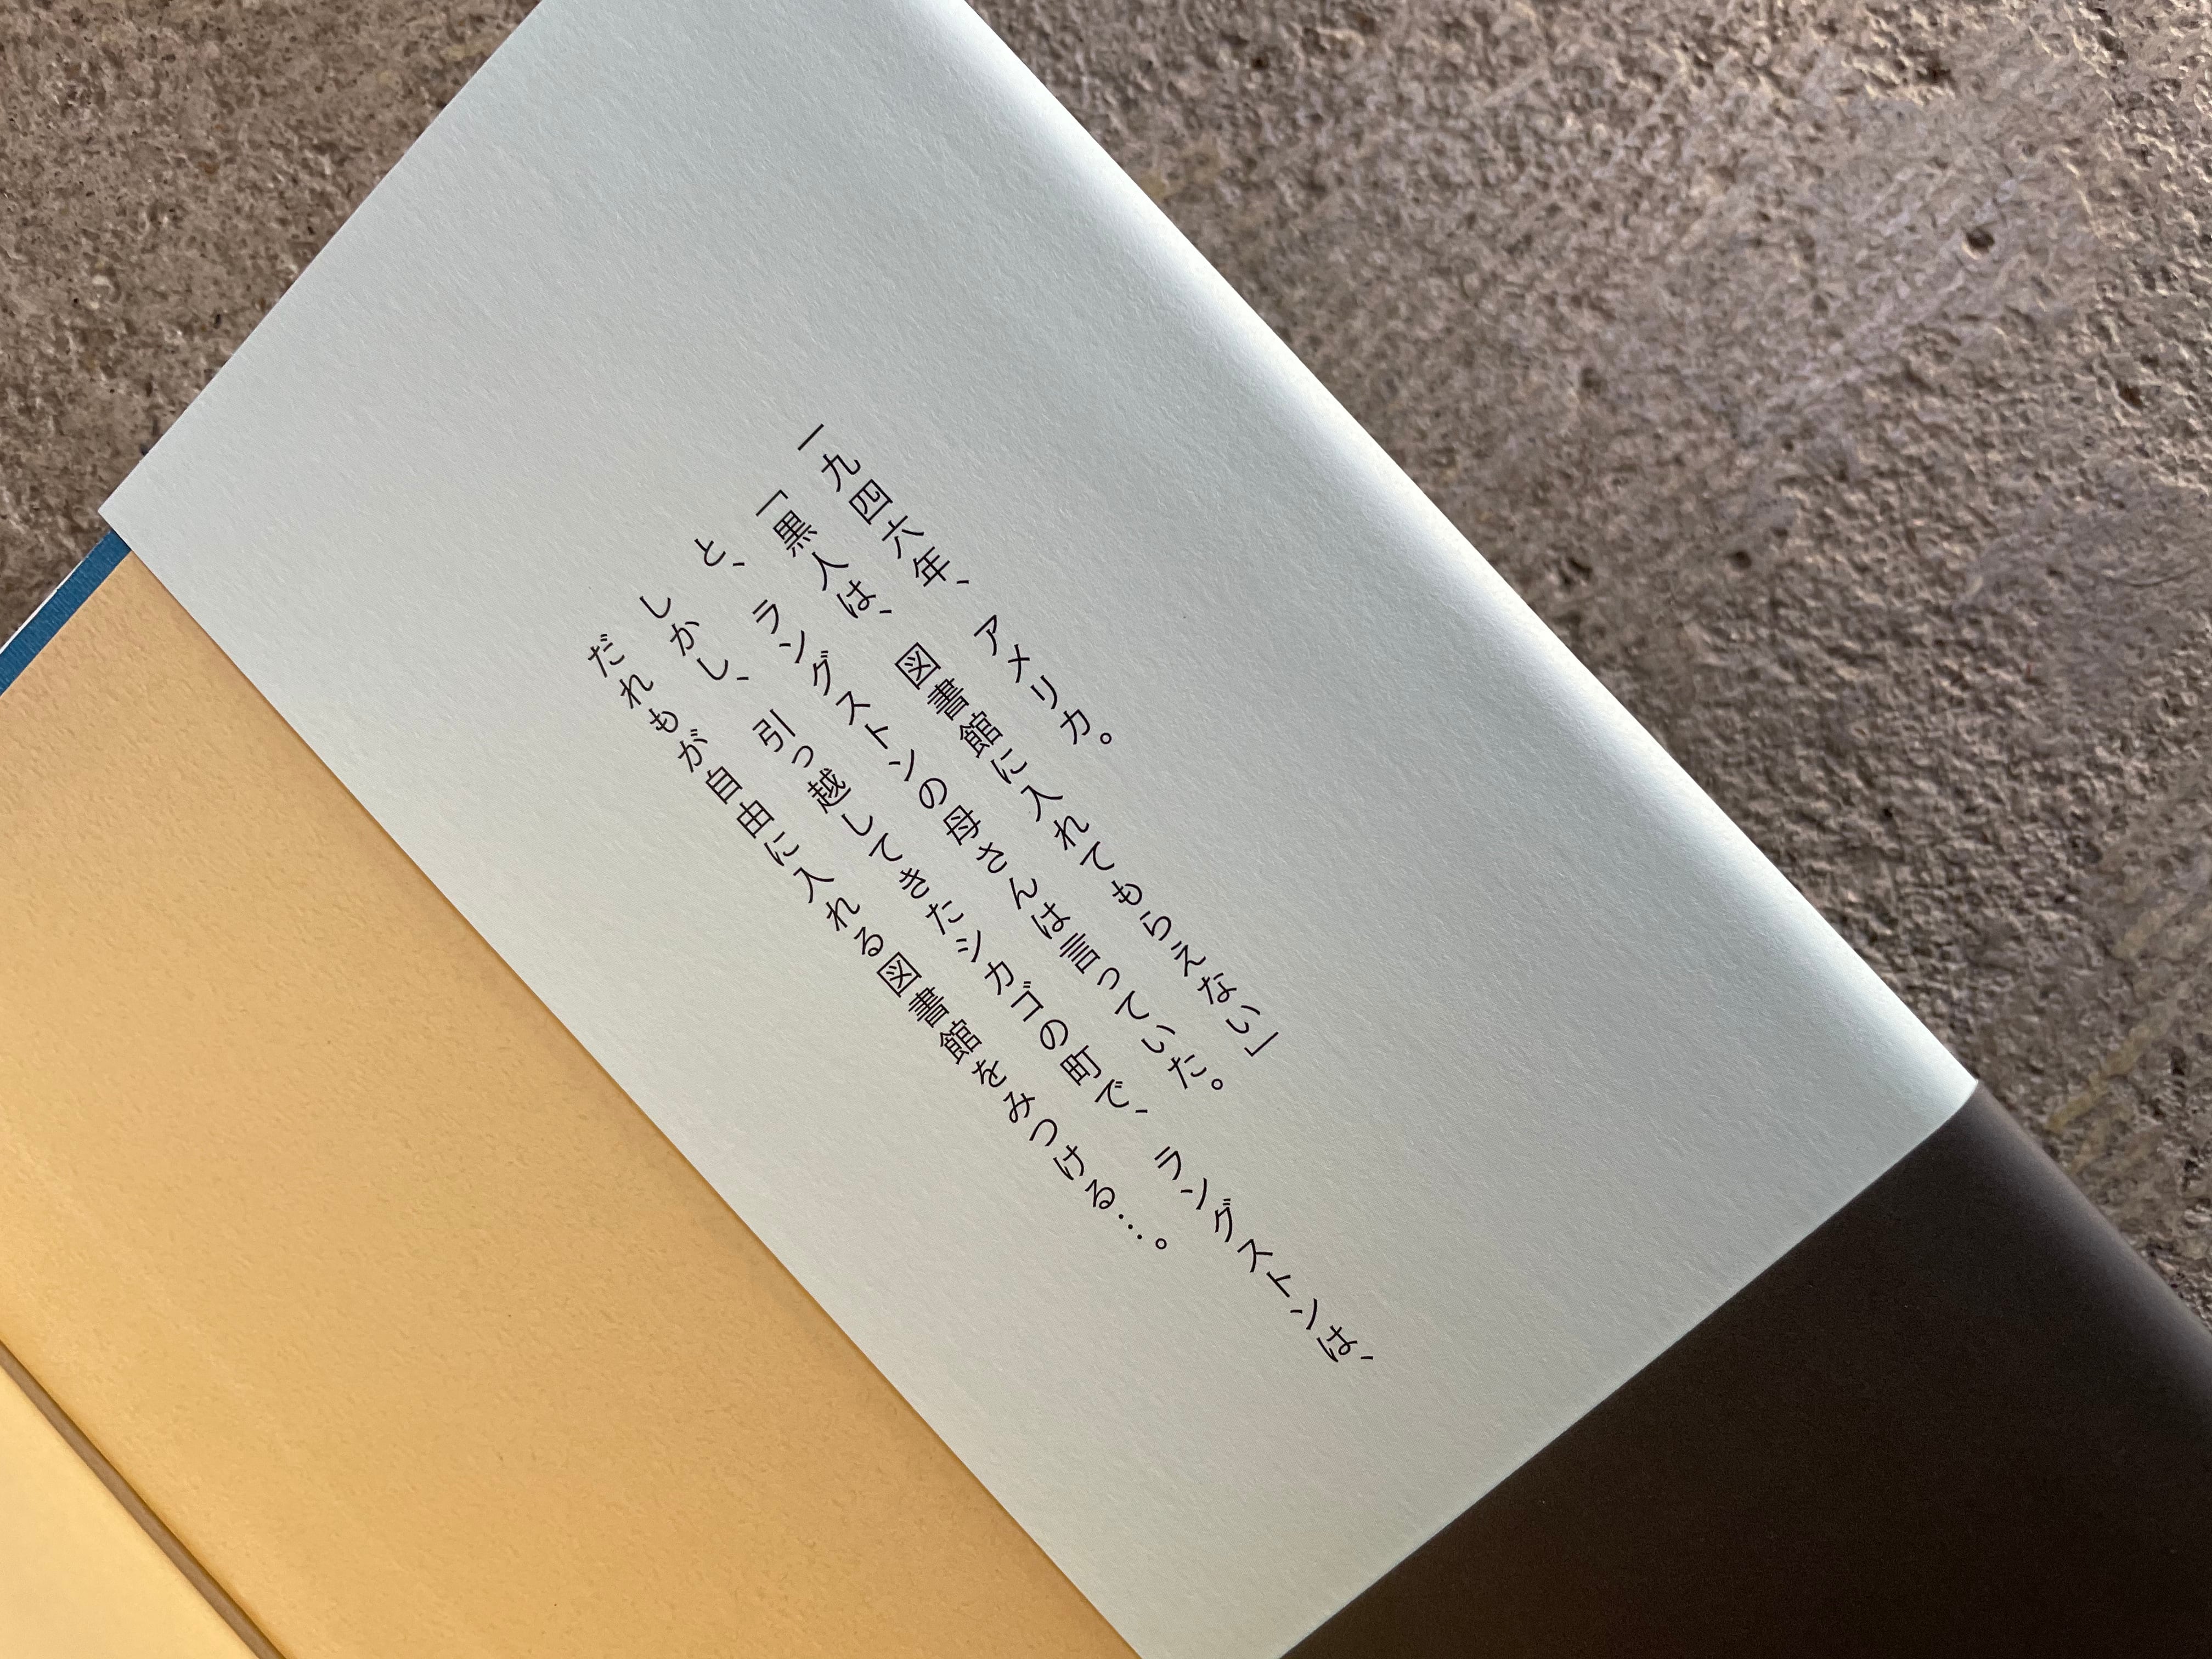 一九四六年、アメリカ。
「黒人は、図書館に入れてもらえない」
と、ラングストンの母さんは言っていた。
しかし、引っ越してきたシカゴの町で、ラングストンは、
だれもが自由に入れる図書館をみつける…。